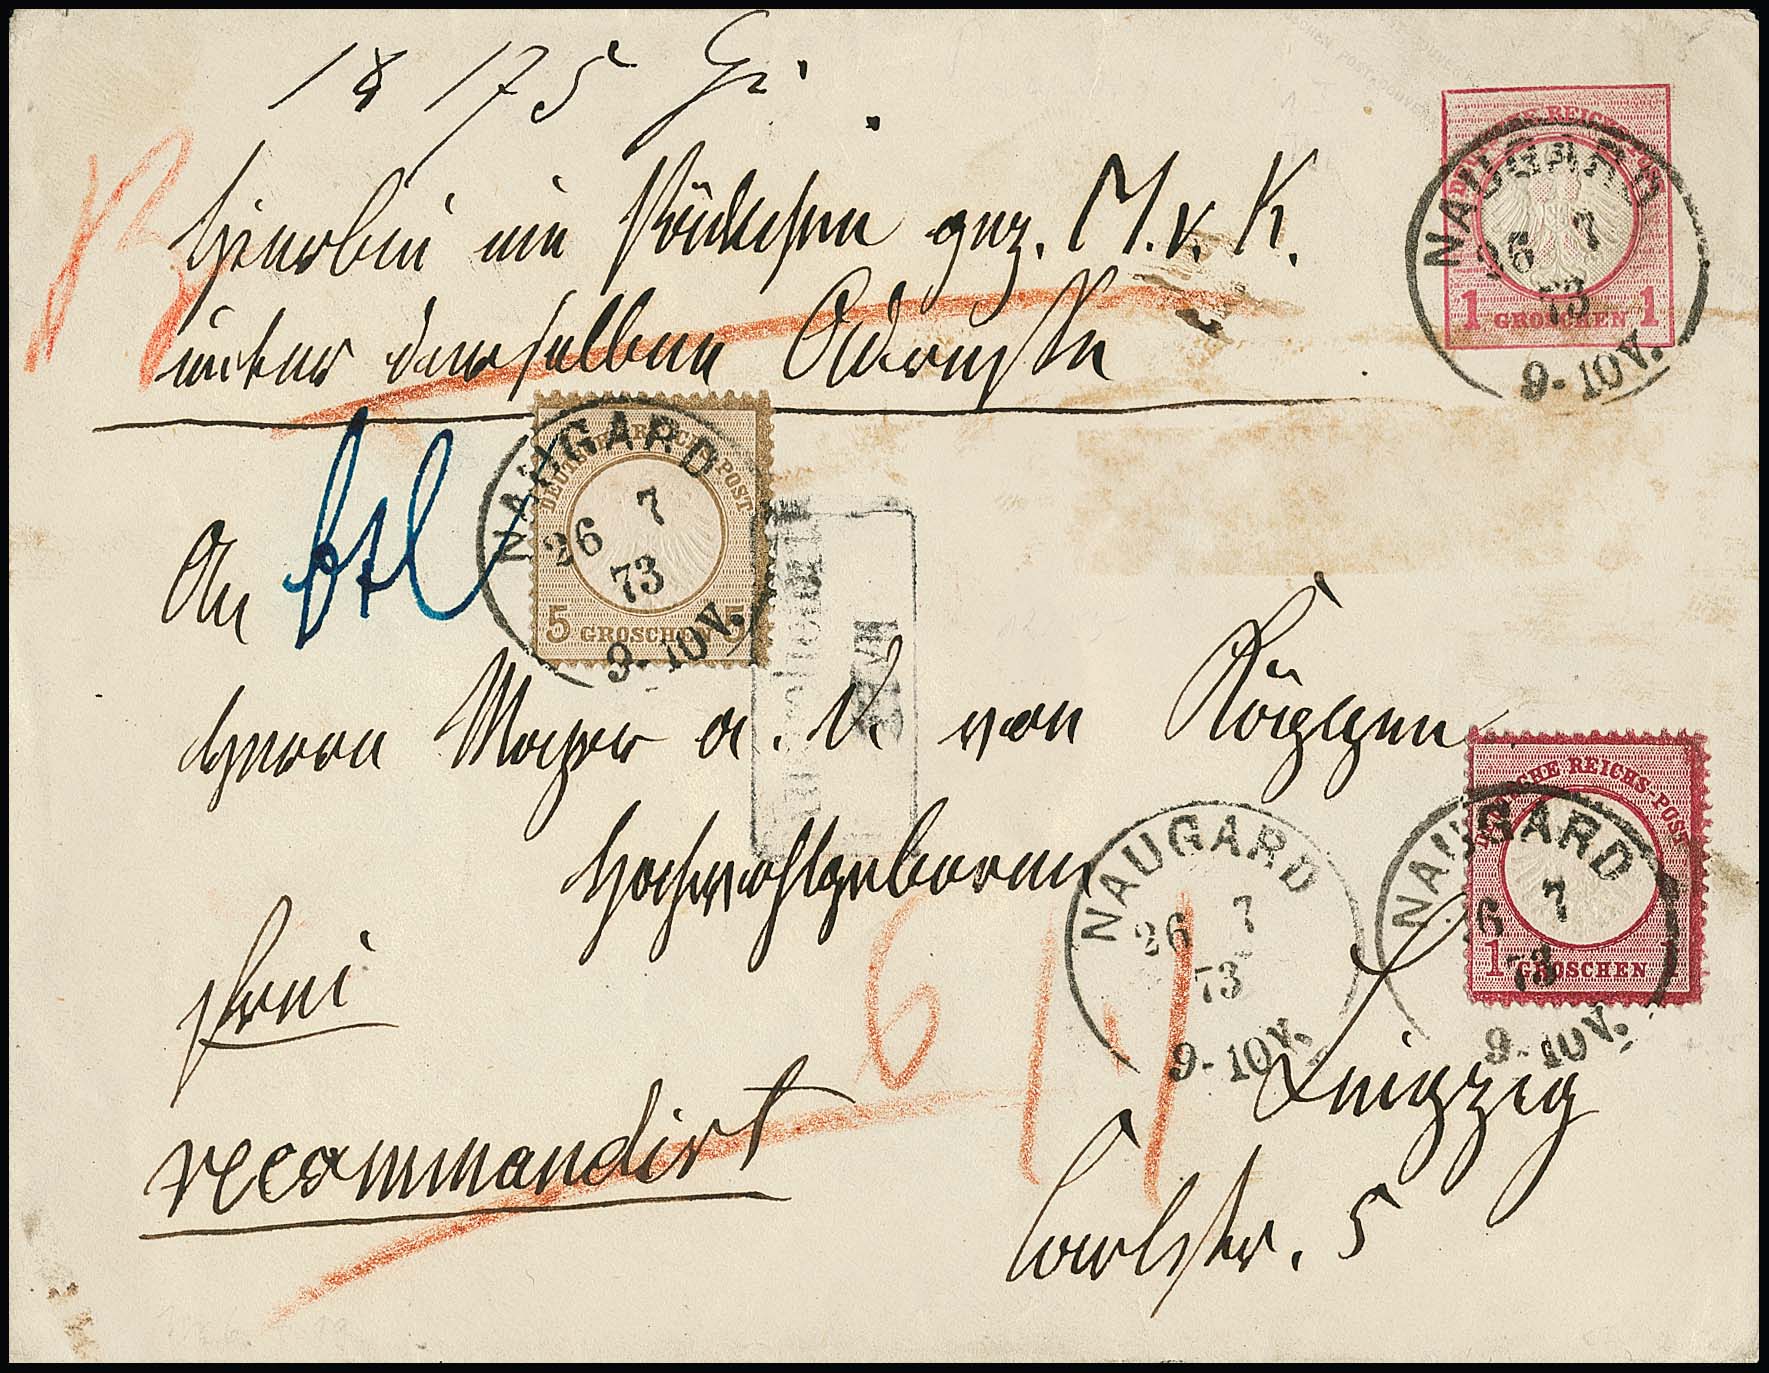 175 Gr.
Hierbei ein Päckchen gez. M. v. K.
unter derselben Adresse
DEUTSCHE REICHS-POST
1 GROSCHEN 1
NAUGARD
26 7
73
9-10V.
DEUTSCHE REICHS-POST
5 GROSCHEN 5
NAUGARD
26 7
73
9-10V.
An
Herrn Major a. D. von Köppen
Hochwohlgeboren
NAUGARD
26 7
73
9-10V.
DEUTSCHE REICHS-POST
1 GROSCHEN 1
NAUGARD
26 7
73
9-10V.
frei
6
Leipzig
recommandirt
Carlstr. 5